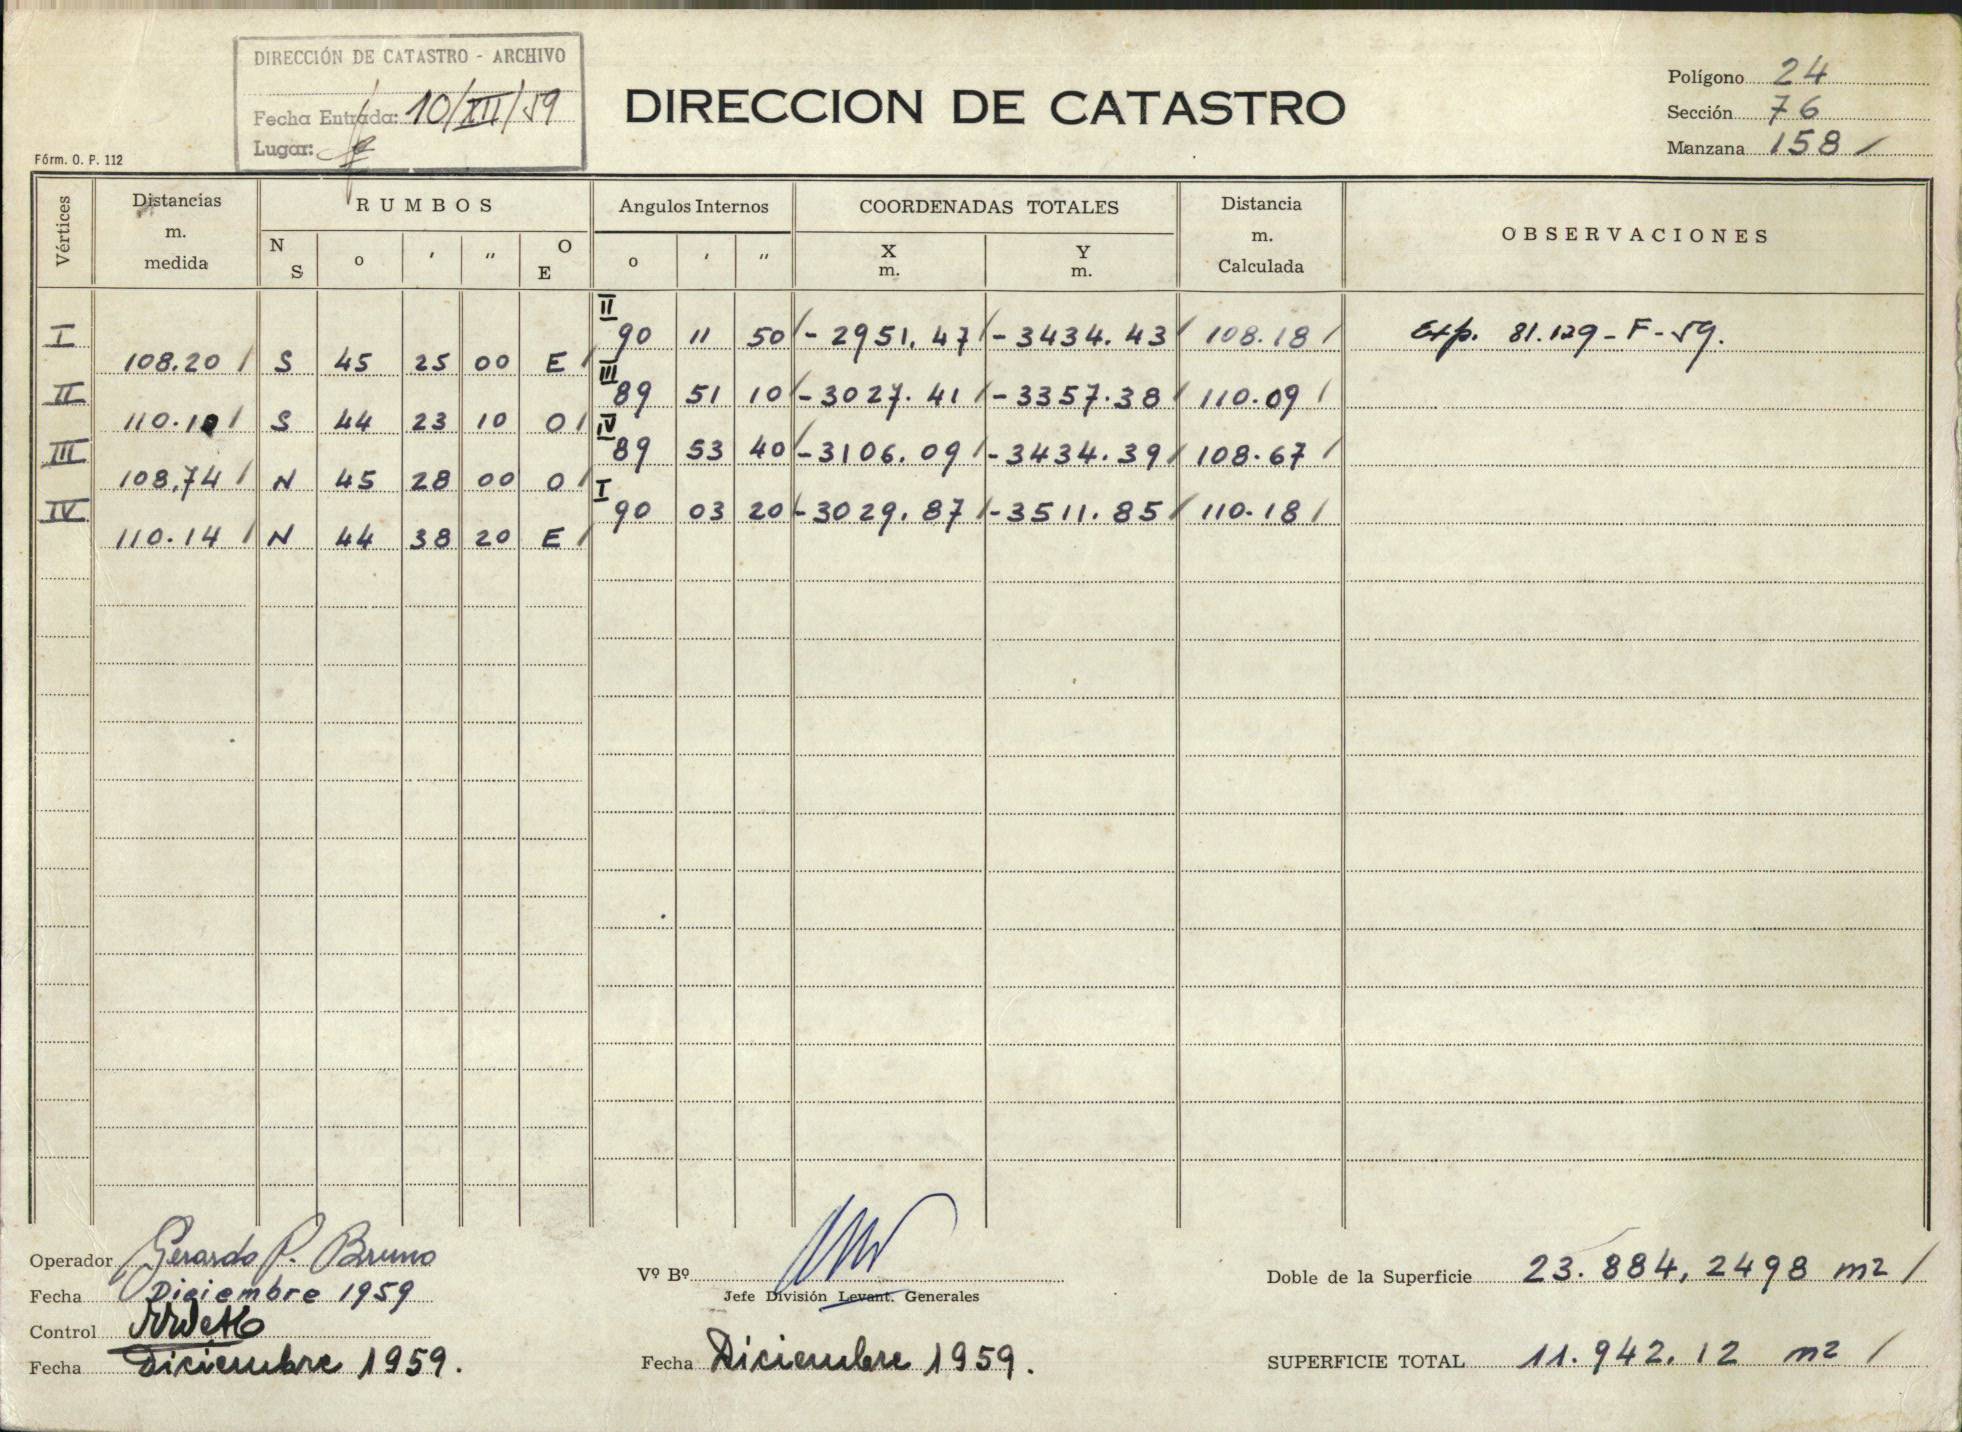 DIRECCIÓN DE CATASTRO - ARCHIVO
Fecha Entrada: 10/XII/59
Lugar:
Fórm. O. P. 112
DIRECCION DE CATASTRO
Polígono 24
Sección 76
Manzana 158 /
Vértices
Distancias m. medida
RUMBOS
N S o ' " O E
Angulos Internos
o ' "
COORDENADAS TOTALES
X m. Y m.
Distancia m. Calculada
OBSERVACIONES
I II 90 11 50 / - 2951.47 / - 3434.43 / 108.18 / Exp. 81.129 - F - 59.
108.20 / S 45 25 00 E /
II III 89 51 10 / - 3027.41 / - 3357.38 / 110.09 /
110.10 / S 44 23 10 O /
III IV 89 53 40 / - 3106.09 / - 3434.39 / 108.67 /
108,74 / N 45 28 00 O /
IV I 90 03 20 - 3029.87 / - 3511.85 / 110.18 /
110.14 / N 44 38 20 E /
Operador Gerardo P. Bruno
Fecha Diciembre 1959
Control
Fecha Diciembre 1959.
Vº Bº
Jefe División Levant. Generales
Fecha Diciembre 1959.
Doble de la Superficie 23.884,2498 m2 /
SUPERFICIE TOTAL 11.942.12 m2 /